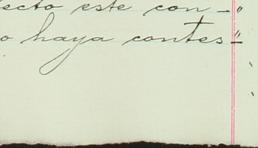 ecto este con-"
o haya contes-"